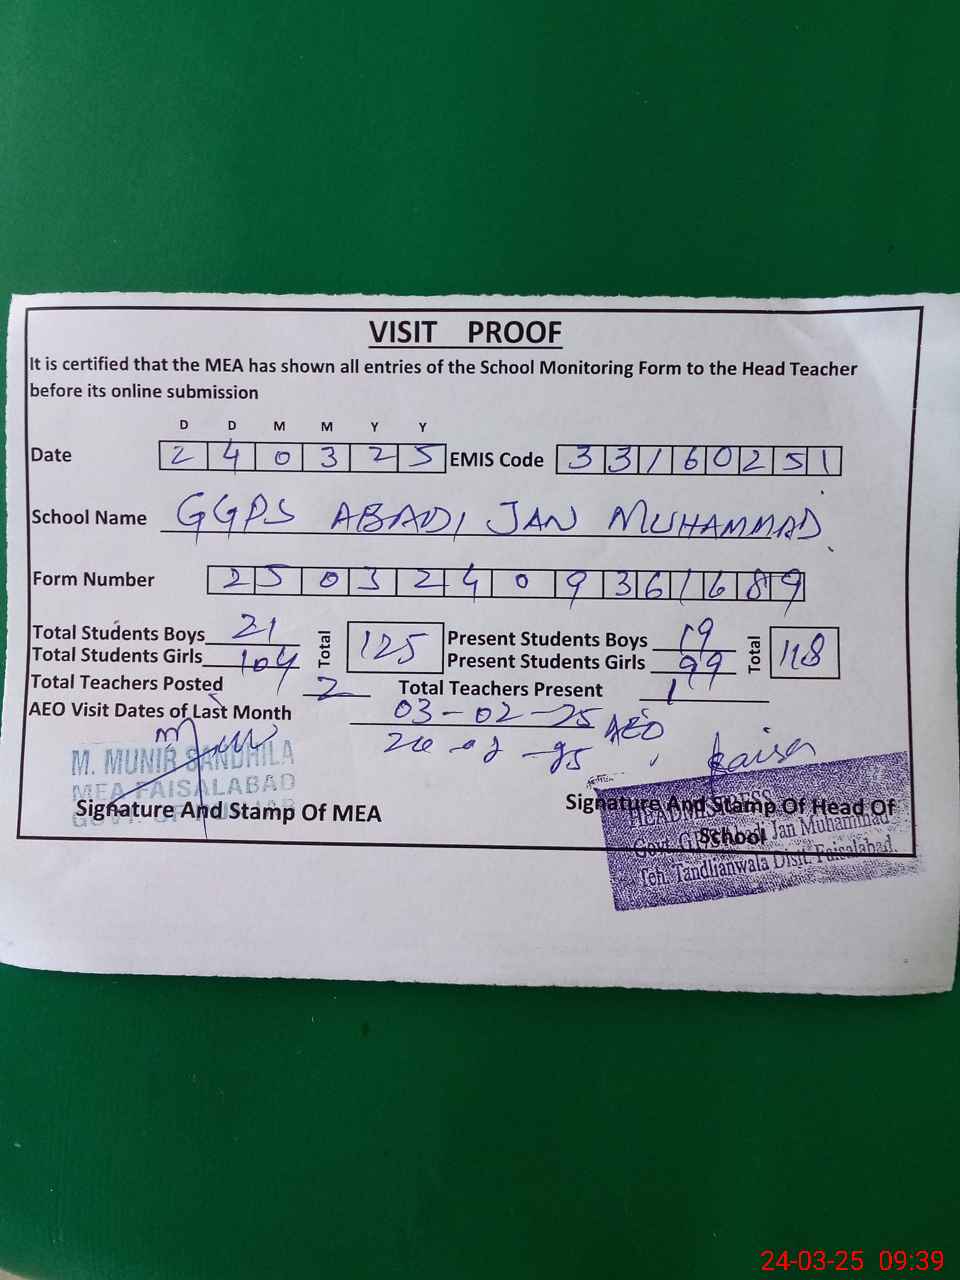 VISIT PROOF
It is certified that the MEA has shown all entries of the School Monitoring Form to the Head Teacher
before its online submission
D D M M Y Y
Date 2 4 0 3 2 5 EMIS Code 3 3 1 6 0 2 5 1
School Name GGPS ABADI JAN MUHAMMAD
Form Number 2 5 0 3 2 4 0 9 3 6 1 6 8 9
Total Students Boys 21 Total 125 Present Students Boys 19 Total 118
Total Students Girls 104 Present Students Girls 99
Total Teachers Posted 2 Total Teachers Present 1
AEO Visit Dates of Last Month 03-02-25 AEO
M. MUNIR SANDHILA
MEA FAISALABAD
Signature And Stamp Of MEA
Signature And Stamp Of Head Of
School
HEADMISTRESS
Jan Muhammad
Teh. Tandlianwala Distt. Faisalabad.
24-03-25 09:39